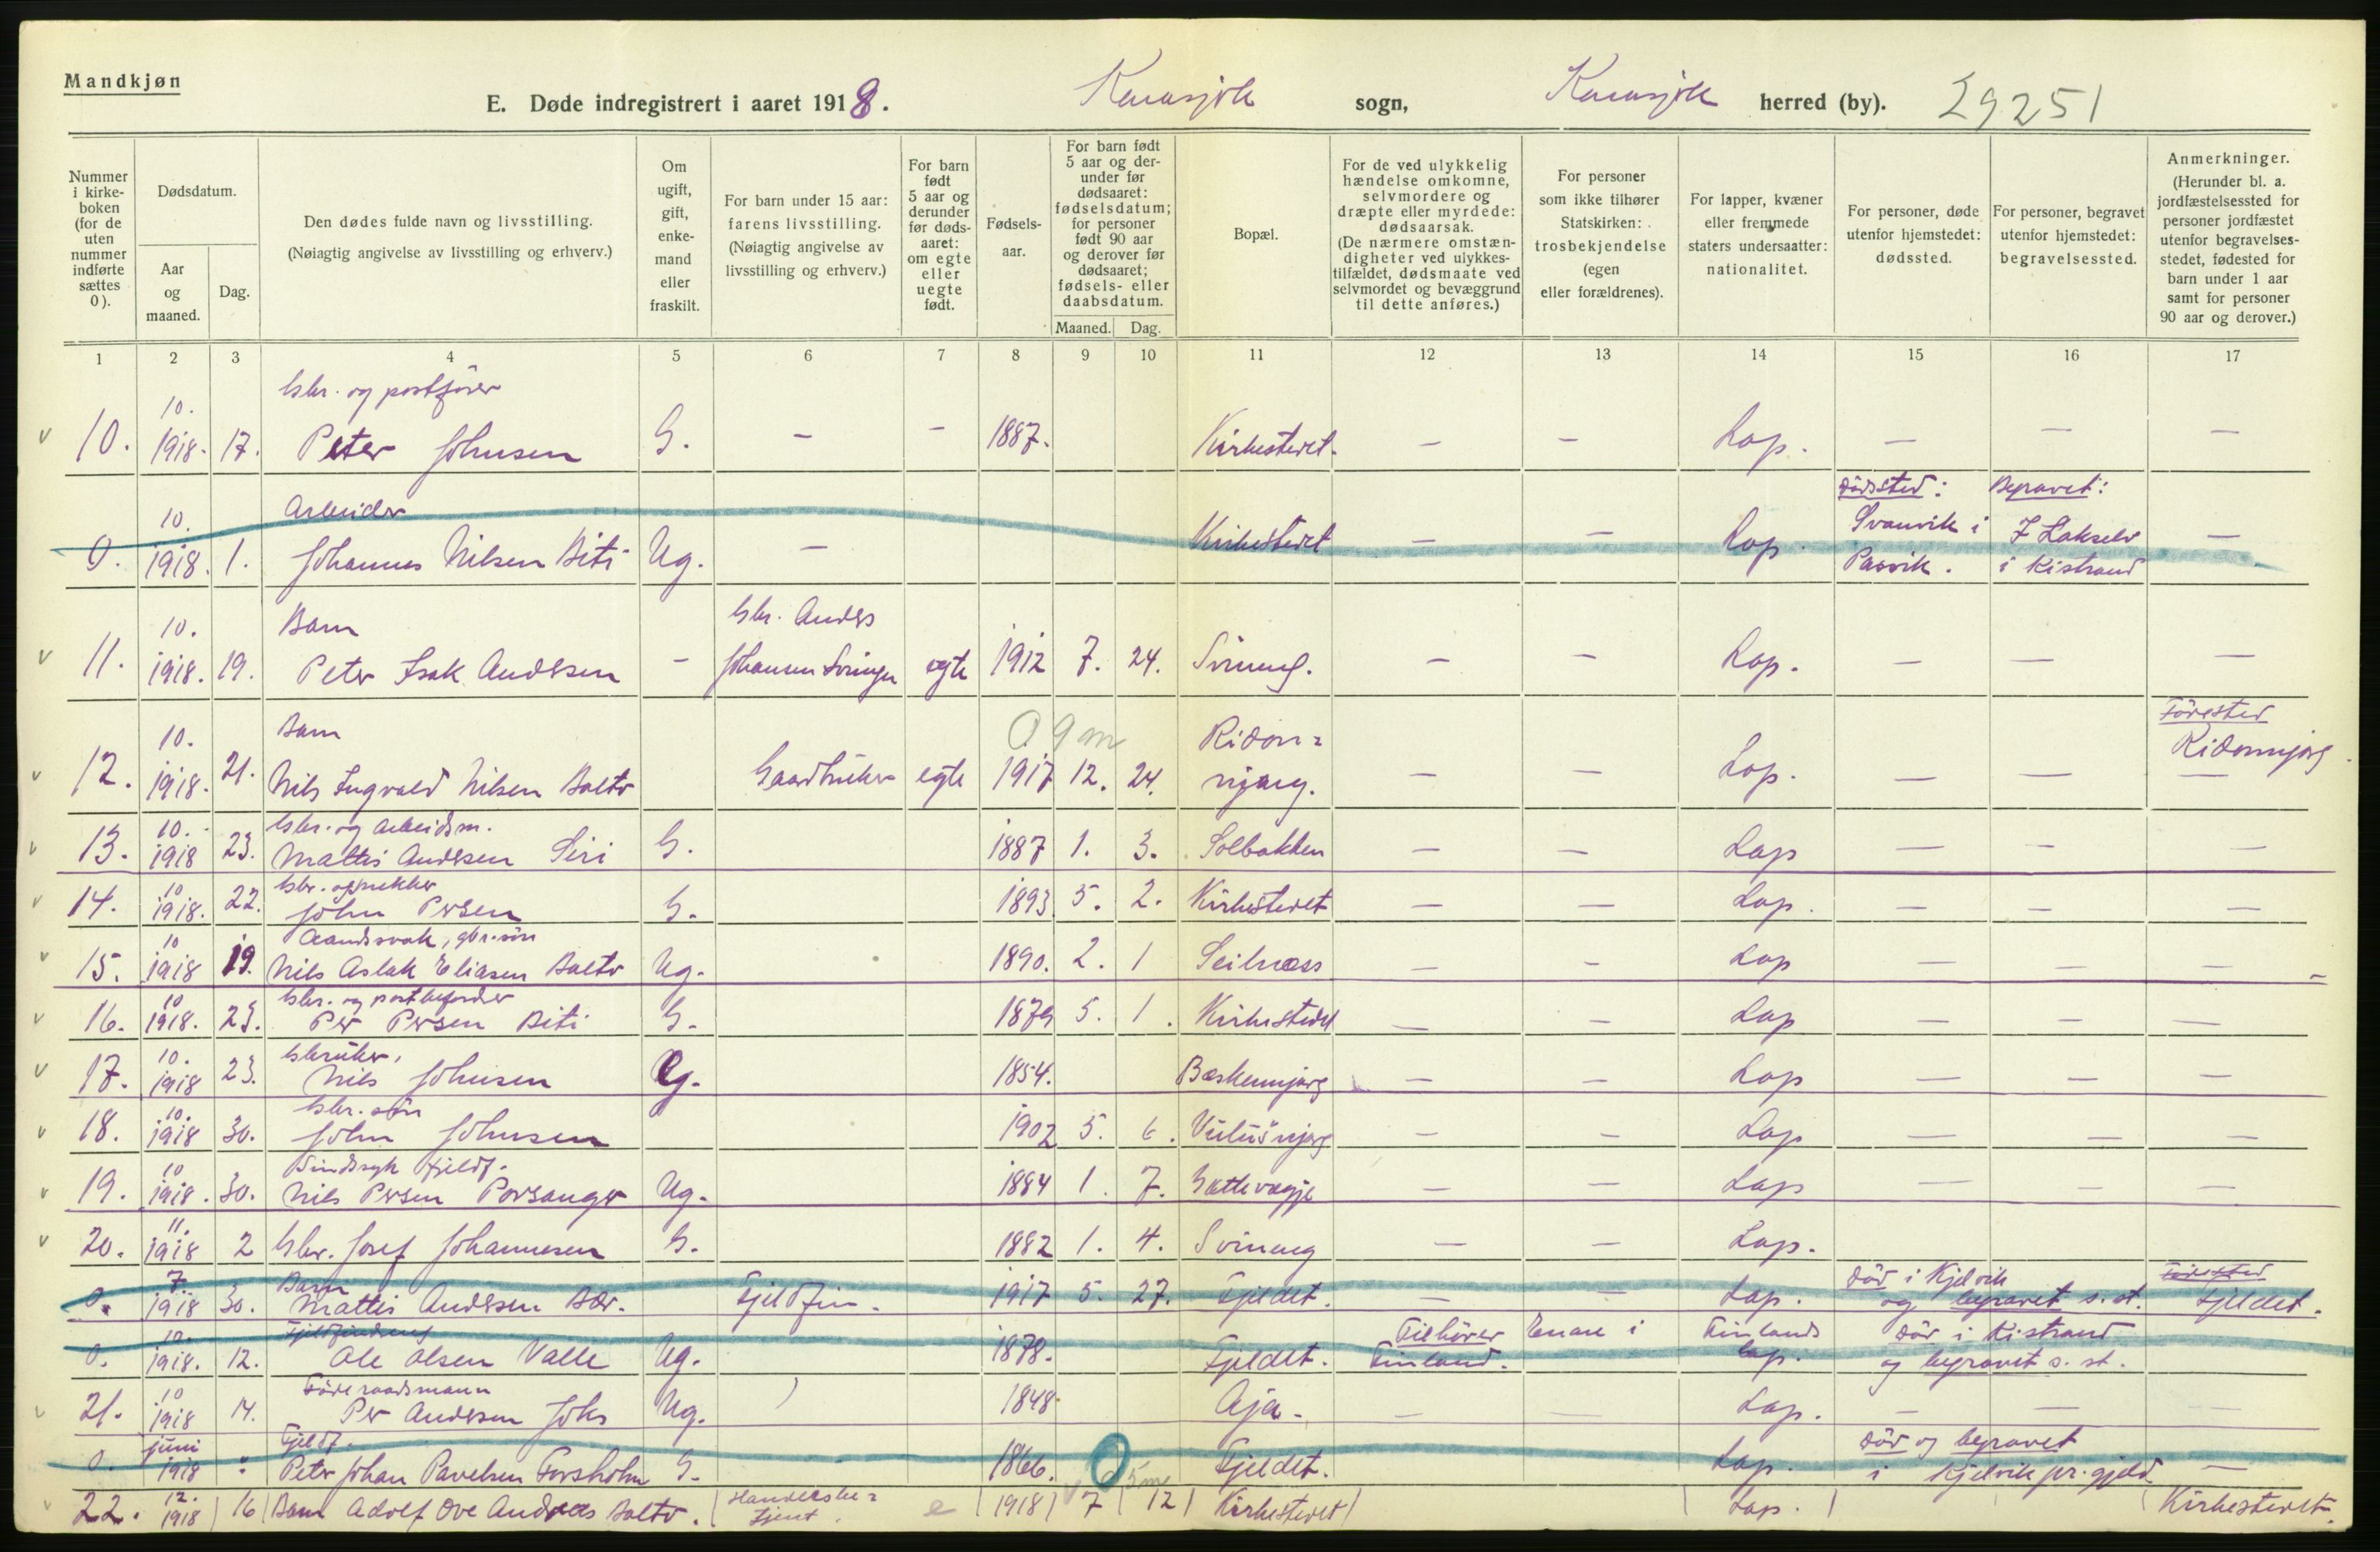 Mandkjøn
E. Døde indregistrert i aaret 1918. Karasjok sogn, Karasjok herred (by). 29251
Nummer i kirke-boken (for de uten nummer indførte sættes 0).
Dødsdatum.
Aar og maaned.
Dag.
Den dødes fulde navn og livsstilling.
(Nøiagtig angivelse av livsstilling og erhverv.)
Om ugift, gift, enke-mand eller fraskilt.
For barn under 15 aar: farens livsstilling.
(Nøiagtig angivelse av livsstilling og erhverv.)
For barn født 5 aar og derunder før døds-aaret: om egte eller uegte født.
Fødsels-aar.
For barn født 5 aar og der-under før dødsaaret: fødselsdatum; for personer født 90 aar og derover før dødsaaret; fødsels- eller daabsdatum.
Maaned. Dag.
Bopæl.
For de ved ulykkelig hændelse omkomne, selvmordere og dræpte eller myrdede: dødsaarsak.
(De nærmere omstæn-digheter ved ulykkes-tilfældet, dødsmaate ved selvmordet og bevæggrund til dette anføres.)
For personer som ikke tilhører Statskirken: trosbekjendelse (egen eller forældrenes).
For lapper, kvæner eller fremmede staters undersaatter: nationalitet.
For personer, døde utenfor hjemstedet: dødssted.
For personer, begravet utenfor hjemstedet: begravelsessted.
Anmerkninger.
(Herunder bl. a. jordfæstelsessted for personer jordfæstet utenfor begravelses-stedet, fødested for barn under 1 aar samt for personer 90 aar og derover.)
1 2 3 4 5 6 7 8 9 10 11 12 13 14 15 16 17
Gbr. og postfører
10. 10. 1918. 17. Peter Johnsen G. – – 1887. Kirkestedet. – – Lap. – – –
Arbeider Dødssted: Begravet:
0. 10. 1918. 1. Johannes Nilsen Biti Ug. – Kirkestedet – – Lap. Svanvik i Pasvik. I Lakselv i Kistrand –
Barn Gbr. Anders
11. 10. 1918. 19. Peter Isak Andersen – Johansen egte 1912 7. 24. Svineng. – – Lap. – – –
Barn 0 9 m Ridon= Fødested
12. 10. 1918. 21. Nils Ingvald Nilsen Balto Gaardbruker egte 1917 12. 24. njarg. – – Lap. – – Ridonnjarg.
Gbr. og arbeidsm.
13. 10. 1918 23. Mattis Andersen Siri G. 1887 1. 3. Solbakken – – Lap – – –
Gbr.
14. 10 1918. 22. John Persen G. 1893 5. 2. Kirkestedet – – Lap. – – –
Aandssvak, gbr.søn
15. 10 1918 19. Nils Aslak Eliasen Balto Ug. 1890. 2. 1 Seilnæss – – Lap – – –
Gbr. og postbefordrer
16. 10 1918. 23. Per Persen Biti G. 1879 5. 1. Kirkestedet – – Lap – – –
Gbruker,
17. 10. 1918 23. Nils Johnsen 1854. – – Lap – – –
Gbr. søn
18. 10. 1918 30. John Johnsen 1902 5. 6. – – Lap – – –
Sindssyk Fjeldf.
19. 10 1918. 30. Nils Persen Porsanger Ug. 1884 1. 7. – – Lap – – –
20. 11. 1918 2 Gbr. Josef Johannesen G. 1882 1. 4. Svineng – – Lap.
Barn Død i Kjelvik Fødested
0. 7. 1918 30. Mattis Andersen Bær. Fjeldfin. 1917 5. 27. Fjeldet. – – Lap. og begravet s. st. Fjeldet.
Tilhører Enare i Finlands Død i Kistrand
0. 10. 1918. 12. Ole Olsen Valle Ug. 1878. Fjeldet. Finland. lap. og begravet s. st.
Føderaadsmann
21. 10 1918 14. Per Andersen Johs Ug. 1848. Aja. – – Lap. – – –
Fjeldf. Død og begravet
0. juni 1918 " Peter Johan Pavelsen Forsholm G. 1866. Fjeldet. Lap. i Kjelvik pr.gjeld –
0 5 m
22. 12. 1918 16 Barn Adolf Ove Andreas Balto. Handelsbe= tjent. e 1918 7 12 Kirkestedet Lap. Kirkestedet.